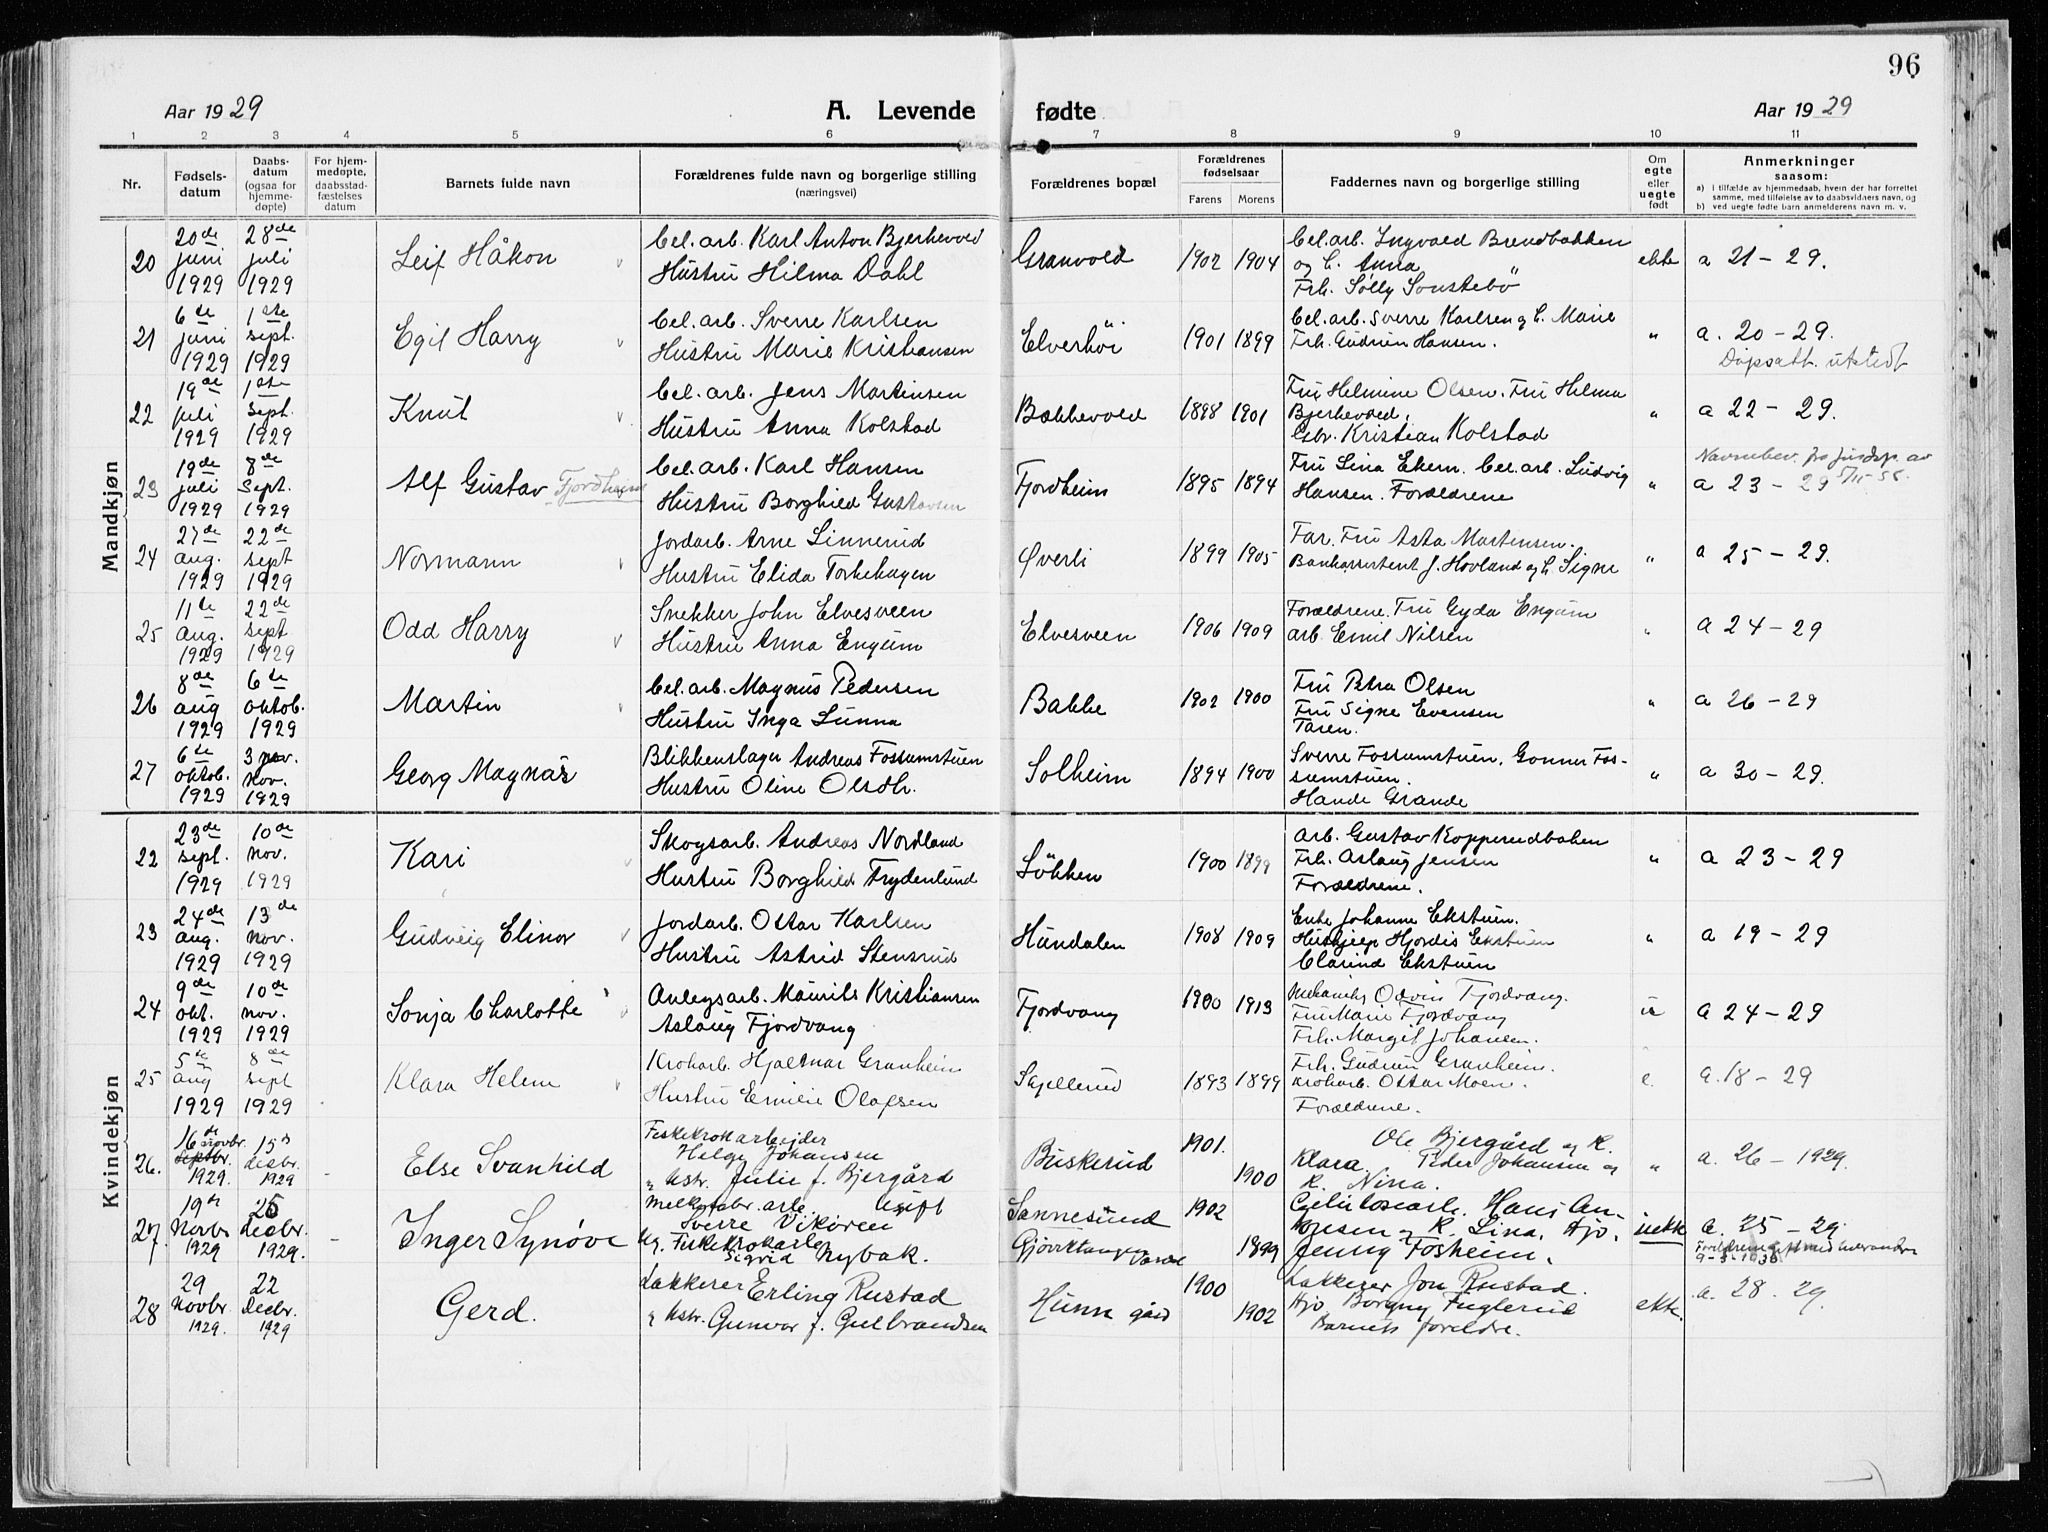 96
Aar 1929 A. Levende fødte Aar 1929
1 2 3 4 5 6 7 8 9 10 11
Nr.
Fødsels-
datum
Daabs-
datum
(ogsaa for
hjemme-
døpte)
For hjem-
medøpte,
daabsstad-
fæstelses
datum
Barnets fulde navn
Forældrenes fulde navn og borgerlige stilling
(næringsvei)
Forældrenes bopæl
Forældrenes
fødselsaar
Farens Morens
Faddernes navn og borgerlige stilling
Om
egte
eller
uegte
født
Anmerkninger
saasom:
a) i tilfælde av hjemmedaab, hvem der har forrettet
samme, med tilføielse av to daabsvidners navn, og
b) ved uegte fødte barn anmelderens navn m. v.
Mandkjøn
20
20de juni 1929
28de juli 1929
Leif Håkon
Cel. arb. Karl Anton Bjerkevold
Hustru Hilma Dahl
Granvold
1902 1904
Cel. arb. Ingvald Brendbakken
og h. Anna
Frk. Solly Sønstebö
ekte
a 21 - 29.
21
6te juni 1929
1ste sept. 1929
Egil Harry
Cel. arb. Sverre Karlsen
Hustru Marie Kristiansen
Elverhöi
1901 1899
Cel. arb. Sverre Karlsen og h. Marie
Frk. Gudrun Hansen.
"
a. 20 - 29.
Dåpsatt. utstedt
22
19de juli 1929
1ste sept. 1929
Knut
Cel. arb. Jens Martinsen
Hustru Anna Kolstad
Bakkevold
1898 1901
Fru Helmine Olsen. Fru Hilma
Bjerkevold.
Gbr. Kristian Kolstad
"
a 22 - 29.
23
19de juli 1929
8de Sept. 1929
Alf Gustav Fjordheim
Cel. arb. Karl Hansen
Hustru Borghild Gustavsen
Fjordheim
1895 1894
Fru Lina Ekern. Cel. arb. Ludvig
Hansen. Forældrene
"
Navnebev. fra justisdep. av
a 23 - 29
24
27de aug. 1929
22de sept 1929
Normann
Jordarb. Arne Linnerud
Hustru Elida Torkehagen
Øverli
1899 1905
Far. Fru Asta Martensen.
Bankassistent J. Hovland og h. Signe
"
a 25 - 29.
25
11te aug. 1929
22de sept 1929
Odd Harry
Snekker John Elvesveen
Hustru Anna Engum
Elvesveen
1906 1909
Forældrene. Fru Gyda Engum
arb. Emil Nilsen
"
a 24 - 29
26
8de aug 1929
6te oktob. 1929
Martin
Cel. arb. Magnus Pedersen
Hustru Inga Lunna
Bakke
1902 1900
Fru Petra Olsen
Fru Signe Evensen
Faren.
"
a 26 - 29
27
6te oktob. 1929
3 nov. nov. 1929
Georg Magnar
Blikkenslager Andreas Fossumstuen
Hustru Oline Olsdtr.
Solheim
1894 1900
Sverre Fossumstuen. Gunner Fos-
sumstuen.
Hande Grande
"
a 30 - 29.
Kvindekjøn
22
23de sept. 1929
10de nov. 1929
Kari
Skogsarb. Andreas Nordland
Hustru Borghild Frydenlund
Løkken
1900 1899
arb. Gustav Kopperudbaken
Frk. Aslaug Jensen
Forældrene.
"
a 23 - 29
23
24de aug. 1929
13de nov. 1929
Gudveig Elinor
Jordarb. Ottar Karlsen
Hustru Astrid Stensrud
Hundalen
1908 1909
Enke Johanne Ekstuen.
Hushjelp Hjördis Ekstuen
Clarind Ekstuen
"
a 19 - 29
24
9de okt. 1929
10de nov. 1929
Sonja Charlotte
Anlegsarb. Mauritz Kristiansen
Aslaug Fjordvang
Fjordvang
1900 1913
Mekaniker Odvin Fjordvang.
Fru Marie Fjordvang
Frk. Margit Johansen.
u
a 24 - 29
25
5te aug 1929
8de sept 1929
Klara Helene
Krokarb. Hjalmar Granheim
Hustru Emilie Olafsen
Skjellerud
1893 1899
Frk. Gudrun Granheim.
krokarb. Ottar Moen.
Forældrene.
e.
a. 18 - 29
26.
16de novbr. septbr. 1929.
15de desbr. 1929
Else Svanhild
Fiskekrokarbeider
Helge Johansen
" hstr. Julie f. Bjergård
Buskerud
1901. 1900
Ole Bjergård og K.
Klara. Peder Johansen og
K. Nina.
"
a. 26 - 1929.
27.
19de Novbr 1929
26 Desbr. 1929.
Inger Synøve
Melkefabr. arb. Ugift
Sverre Vikøren
Ug. Fiskekrokarb.
Sigrid Nybak.
Sannesund
1902 1899
Cellulosearb. Hans An-
tonsen og K. Lina. Hjo.
Jenny Fosheim.
uekte
a. 25 - 29.
9-3-1930
28
29 Novbr. 1929.
22 Decbr. 1929
Gerd.
Lakkerer Erling Rustad
" hstr. Gunvor f. Gulbrandsen
Hunn gård
1900 1902
Lakkerer Jon Rustad.
Hjo. Borgny Fuglerud
Barnets foreldre.
ekte.
a. 28. 29.